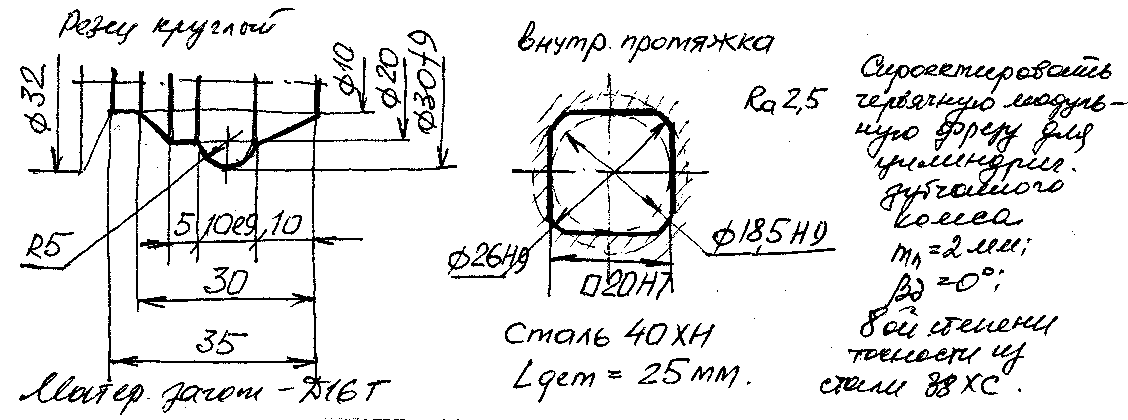 Резец круглый
ϕ32
ϕ10
ϕ20
ϕ30f9
R5
5
10e9
10
30
35
Матер. загот – Д16Т
Внутр. протяжка
Ra2,5
ϕ26H9
ϕ18,5H9
□20H7
Сталь 40ХН
Lдет = 25мм.
Спроектировать
червячную модуль-
ную фрезу для
цилиндрич.
зубчатого
колеса
mn=2мм;
βд=0°;
8ой степени
точности из
стали 38ХС.